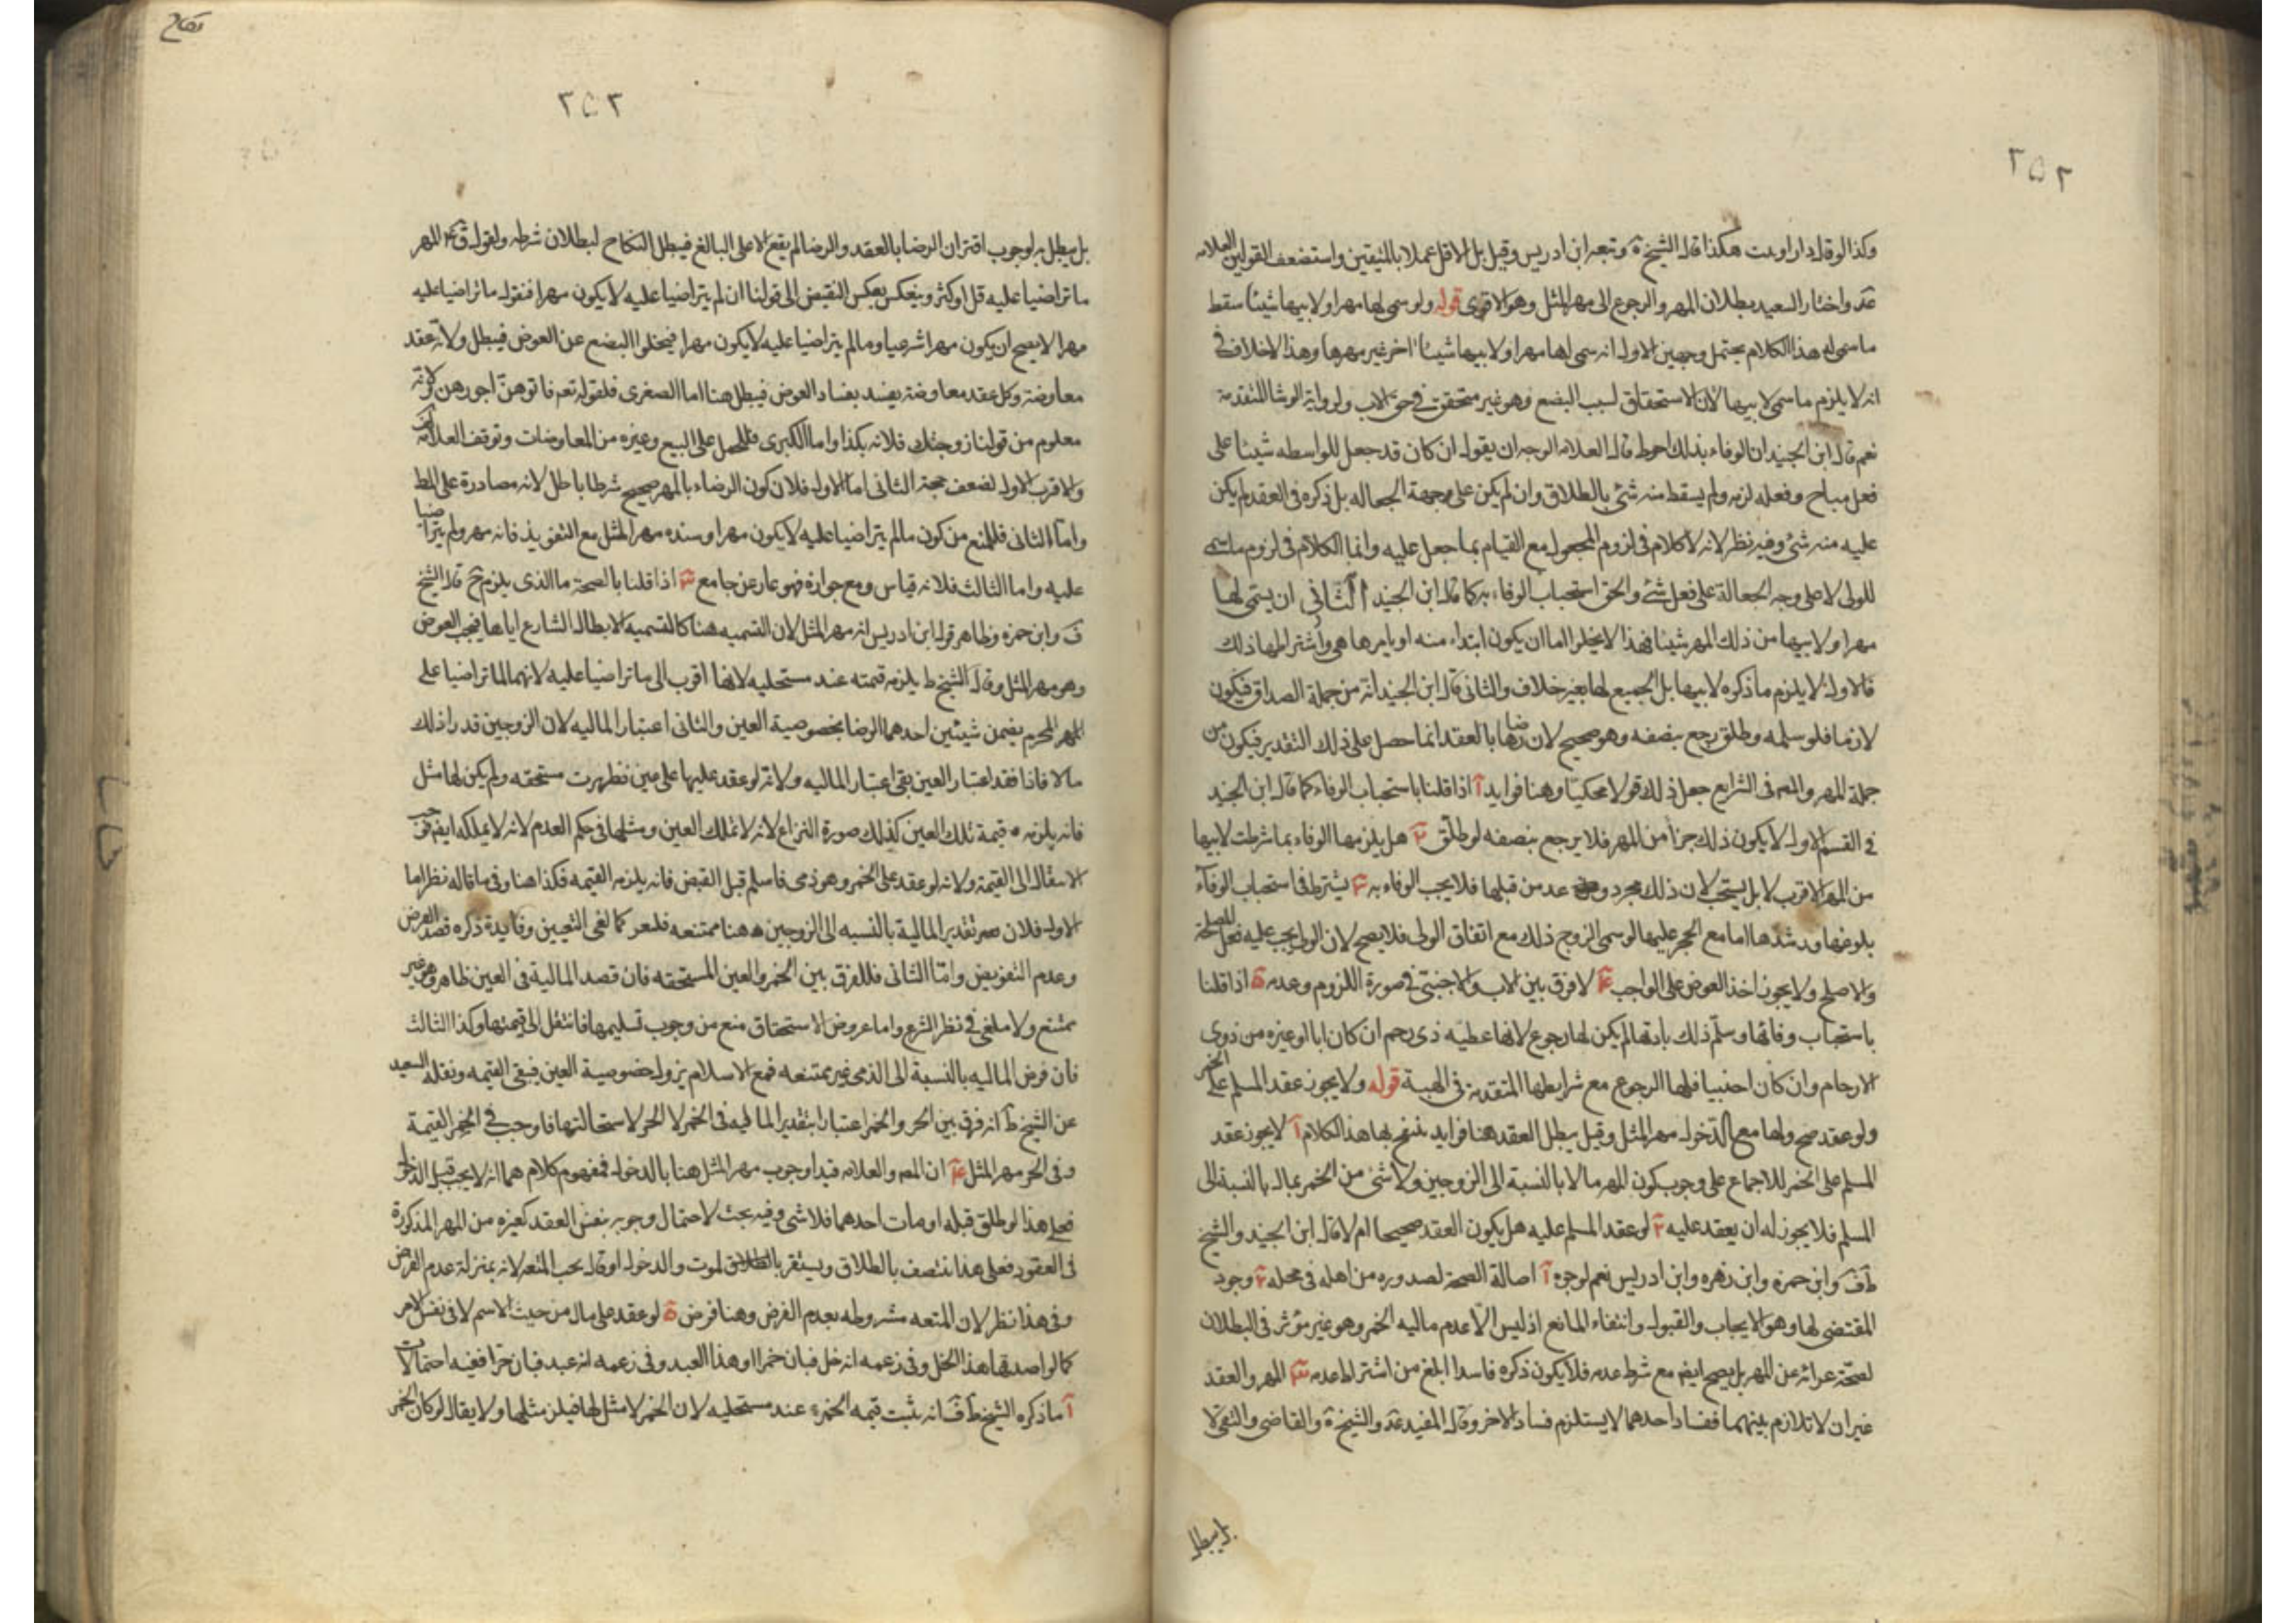 ٢٥٢
وكذا لو قال دارا وبيت هكذا قال الشيخ ره وتبعه ابن ادريس وقيل بل الاقل عملا بالمتيقن واستضعف القولين العلامه
عد واختار السعيد بطلان المهر والرجوع الى مهر المثل وهو الاقوى قوله ولو سمى لها مهرا ولابيها شيئا سقط
ما سمى له هذا الكلام يحتمل وجهين الاول انه سمى لها مهرا ولابيها شيئا اخر غير مهرها وهذا لا خلاف فى
انه لا يلزم ما سمى لابيها لان الاستحقاق لسبب البضع وهو غير متحقق فى حق الاب ولرواية الوشا المتقدمة
نعم قال ابن الجنيد ان الوفاء بذلك احوط قال العلامه الوجه ان يقول ان كان قد جعل للواسطه شيئا على
فعل مباح وفعله لزمه ولم يسقط منه شئ بالطلاق وان لم يكن على وجهة الجعاله بل ذكره فى العقد لم يكن
عليه منه شئ وفيه نظر لانه لا كلام فى لزوم المجعول مع القيام بما جعل عليه وانما الكلام فى لزوم ما سمى
للولى لا على وجه الجعالة على فعل شئ والحق استحباب الوفاء به كما قال ابن الجنيد الثانى ان يسمى لها
مهرا ولابيها من ذلك المهر شيئا فهذا لا يخلوا اما ان يكون ابتداء منه او بامرها هى واشتراطها ذلك
فالاول لا يلزم ما ذكره لابيها بل الجميع لها بغير خلاف والثانى قال ابن الجنيد انه من جملة الصداق فيكون
لازما فلو سلمه وطلق رجع بنصفه وهو صحيح لان رضاها بالعقد انما حصل على ذلك التقدير فيكون من
جملة المهر والمص فى الشرايع جعل ذلك قولا محكيا وهنا فوايد آ اذا قلنا باستحباب الوفاء كما قال ابن الجنيد
فى القسم الاول لا يكون ذلك جزأ من المهر فلا يرجع بنصفه لو طلق ٢ هل يلزمها الوفاء بما شرطت لابيها
من المهر الاقرب لا بل يستحب لان ذلك مجرد وعد من قبلها فلا يجب الوفاء به ٣ يشترط فى استحباب الوفاء
بلوغها ورشدها اما مع الحجر عليها لو سمى الزوج ذلك مع اتفاق الولى فلا يصح لان الولى يجب عليه فعل المصلحة
والاصلح ولا يجوز اخذ العوض على الواجب ٤ لا فرق بين الاب والاجنبى فى صورة اللزوم وعدمه ة اذا قلنا
باستحباب وفائها وسلم ذلك باذنها لم يكن لها رجوع لانها عطيه ذى رحم ان كان ابا او غيره من ذوى
الارحام وان كان اجنبيا فلها الرجوع مع شرايطها المتقدمه فى الهبة قوله ولا يجوز عقد المسلم على الخمر
ولو عقد صح ولها مع الدخول مهر المثل وقيل يبطل العقد هنا فوايد يتضح بها هذا الكلام آ لا يجوز عقد
المسلم على الخمر للاجماع على وجوب كون المهر مالا بالنسبة الى الزوجين ولا شئ من الخمر بمال بالنسبة الى
المسلم فلا يجوز له ان يعقد عليه ٢ لو عقد المسلم عليه هل يكون العقد صحيحا ام لا قال ابن الجنيد والشيخ
ط ف وابن حمزه وابن زهره وابن ادريس نعم لوجوه آ اصالة الصحة لصدوره من اهله فى محله ٢ وجود
المقتضى لها وهو الايجاب والقبول وانتفاء المانع اذ ليس الا عدم ماليه الخمر وهو غير مؤثر فى البطلان
لصحة عرائه عن المهر بل يصح ايضم مع شرط عدمه فلا يكون ذكره فاسدا ابلغ من اشتراط عدمه ٣ المهر والعقد
غيران لا تلازم بينهما ففساد احدهما لا يستلزم فساد الاخر وقال المفيد عد والشيخ ة والقاضى والتقى لا
بل يبطل
نكاح
٢٥٣
بل يبطل به لوجوب اقتران الرضا بالعقد والرضا لم يقع الا على البالغ فيبطل النكاح لبطلان شرطه ولقوله ق ع المهر
ما تراضيا عليه قل او كثر وينعكس بعكس النقيض الى قولنا ان لم يتراضيا عليه لا يكون مهرا فنقول ما تراضيا عليه
مهرا لا يصح ان يكون مهرا شرعيا وما لم يتراضيا عليه لا يكون مهرا فيخلوا البضع عن العوض فيبطل ولانه عقد
معاوضة وكل عقد معاوضة يفسد بفساد العوض فيبطل هنا اما الصغرى فلقوله تعم فاتوهن اجورهن لانه
معلوم من قولنا زوجتك فلانه بكذا واما الكبرى فللحمل على البيع وغيره من المعاوضات وتوقف العلامه
والاقرب الاول لضعف حجة الثانى اما الاول فلان كون الرضاء بالمهر صحيح شرطا باطل لانه مصادرة على المط
واما الثانى فللمنع من كون ما لم يتراضيا عليه لا يكون مهرا وسنده مهر المثل مع التفويذ فانه مهر ولم يتراضيا
عليه واما الثالث فلانه قياس ومع جوازه فهو عار عن جامع ٣ اذا قلنا بالصحة ما الذى يلزم ح قال الشيخ
ف وابن حمزه وظاهر قول ابن ادريس انه مهر المثل لان التسميه هنا كالتسميه لابطال الشارع اياها فيجب العوض
وهو مهر المثل وقال الشيخ ط يلزمه قيمته عند مستحليه لانها اقرب الى ما تراضيا عليه لانهما لما تراضيا على
المهر المحرم يضمن شيئين احدهما الرضا بخصوصية العين والثانى اعتبار الماليه لان الزوجين قدرا ذلك
مالا فاذا فقد اعتبار العين بقى اعتبار الماليه ولانه لو عقد عليها على عين فظهرت مستحقه ولم يكن لها مثل
فانه يلزمه قيمة تلك العين كذلك صورة النزاع لانه لا تملك العين ومثلها فى حكم العدم لانه لا يملكه ايضم فوجب
الانتقال الى القيمة ولانه لو عقد على الخمر وهو ذمى فاسلم قبل القبض فانه يلزمه القيمه فكذا هنا وفى ما قاله نظر اما
الاول فلان تقدير المالية بالنسبه الى الزوجين هنا ممتنعه كما لغى التعيين وفايدة ذكره قصد العوض
وعدم التفويض واما الثانى فللفرق بين الخمر والعين المستحقه فان قصد المالية فى العين ظاهر وهو غير
ممتنع ولا ملغى فى نظر الشرع واما عروض الاستحقاق منع من وجوب تسليمها فانتقل الى قيمتها وكذا الثالث
فان فرض الماليه بالنسبة الى الذمى غير ممتنعه فمع الاسلام يزول خصوصية العين فيبقى القيمه ونقل السعيد
عن الشيخ ط انه فرق بين الحر والخمر اعتبار ابتقدير الماليه فى الخمر لا الحر لاستحالتها فاوجب فى الخمر القيمة
وفى الحر مهر المثل ٤ ان المص والعلامه قيدا وجوب مهر المثل هنا بالدخول فمفهوم كلامهما انه لا يجب قبل الدخول
فعلى هذا لو طلق قبله او مات احدهما فلا شئ وفيه بحث لاحتمال وجوبه بنفس العقد كغيره من المهر المذكورة
فى العقود فعلى هذا ينتصف بالطلاق ويستقر بالموت والدخول او قال يجب المتعه لانه بمنزلة عدم الفرض
وفى هذا نظر لان المتعه مشروطه بعدم الفرض وهنا فرض ة لو عقد على مال من حيث الاسم لا فى نفس الامر
كما لو اصدقها هذا الخل وفى زعمه انه خل فبان خمرا او هذا العبد وفى زعمه انه عبد فبان حرا ففيه احتمالات
آ ما ذكره الشيخ ط ف انه يثبت قيمه الخمر عند مستحليه لان الخمر لا مثل لها فيلزم مثلها ولا يقال لو كان الخمر